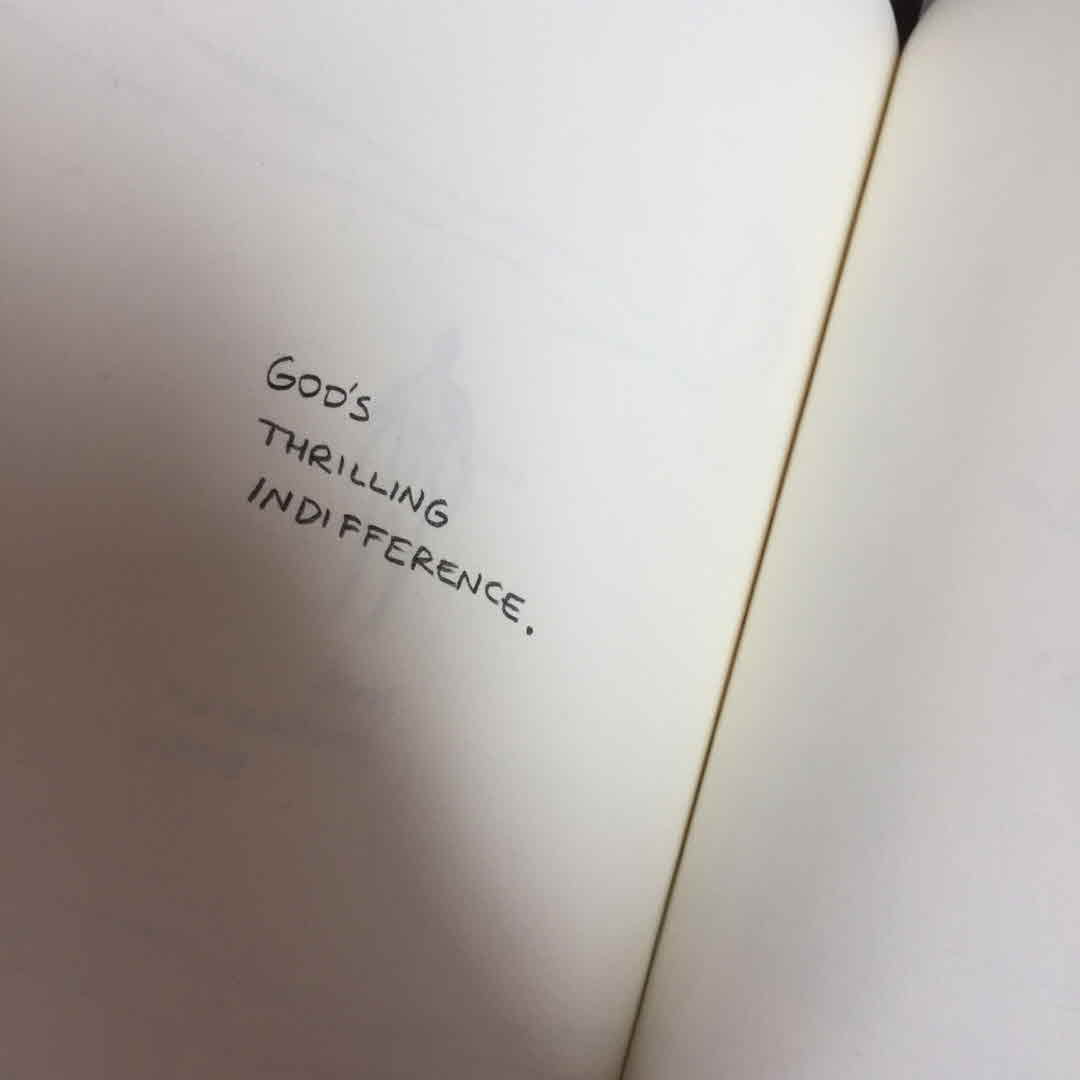 GOD'S
THRILLING
INDIFFERENCE.